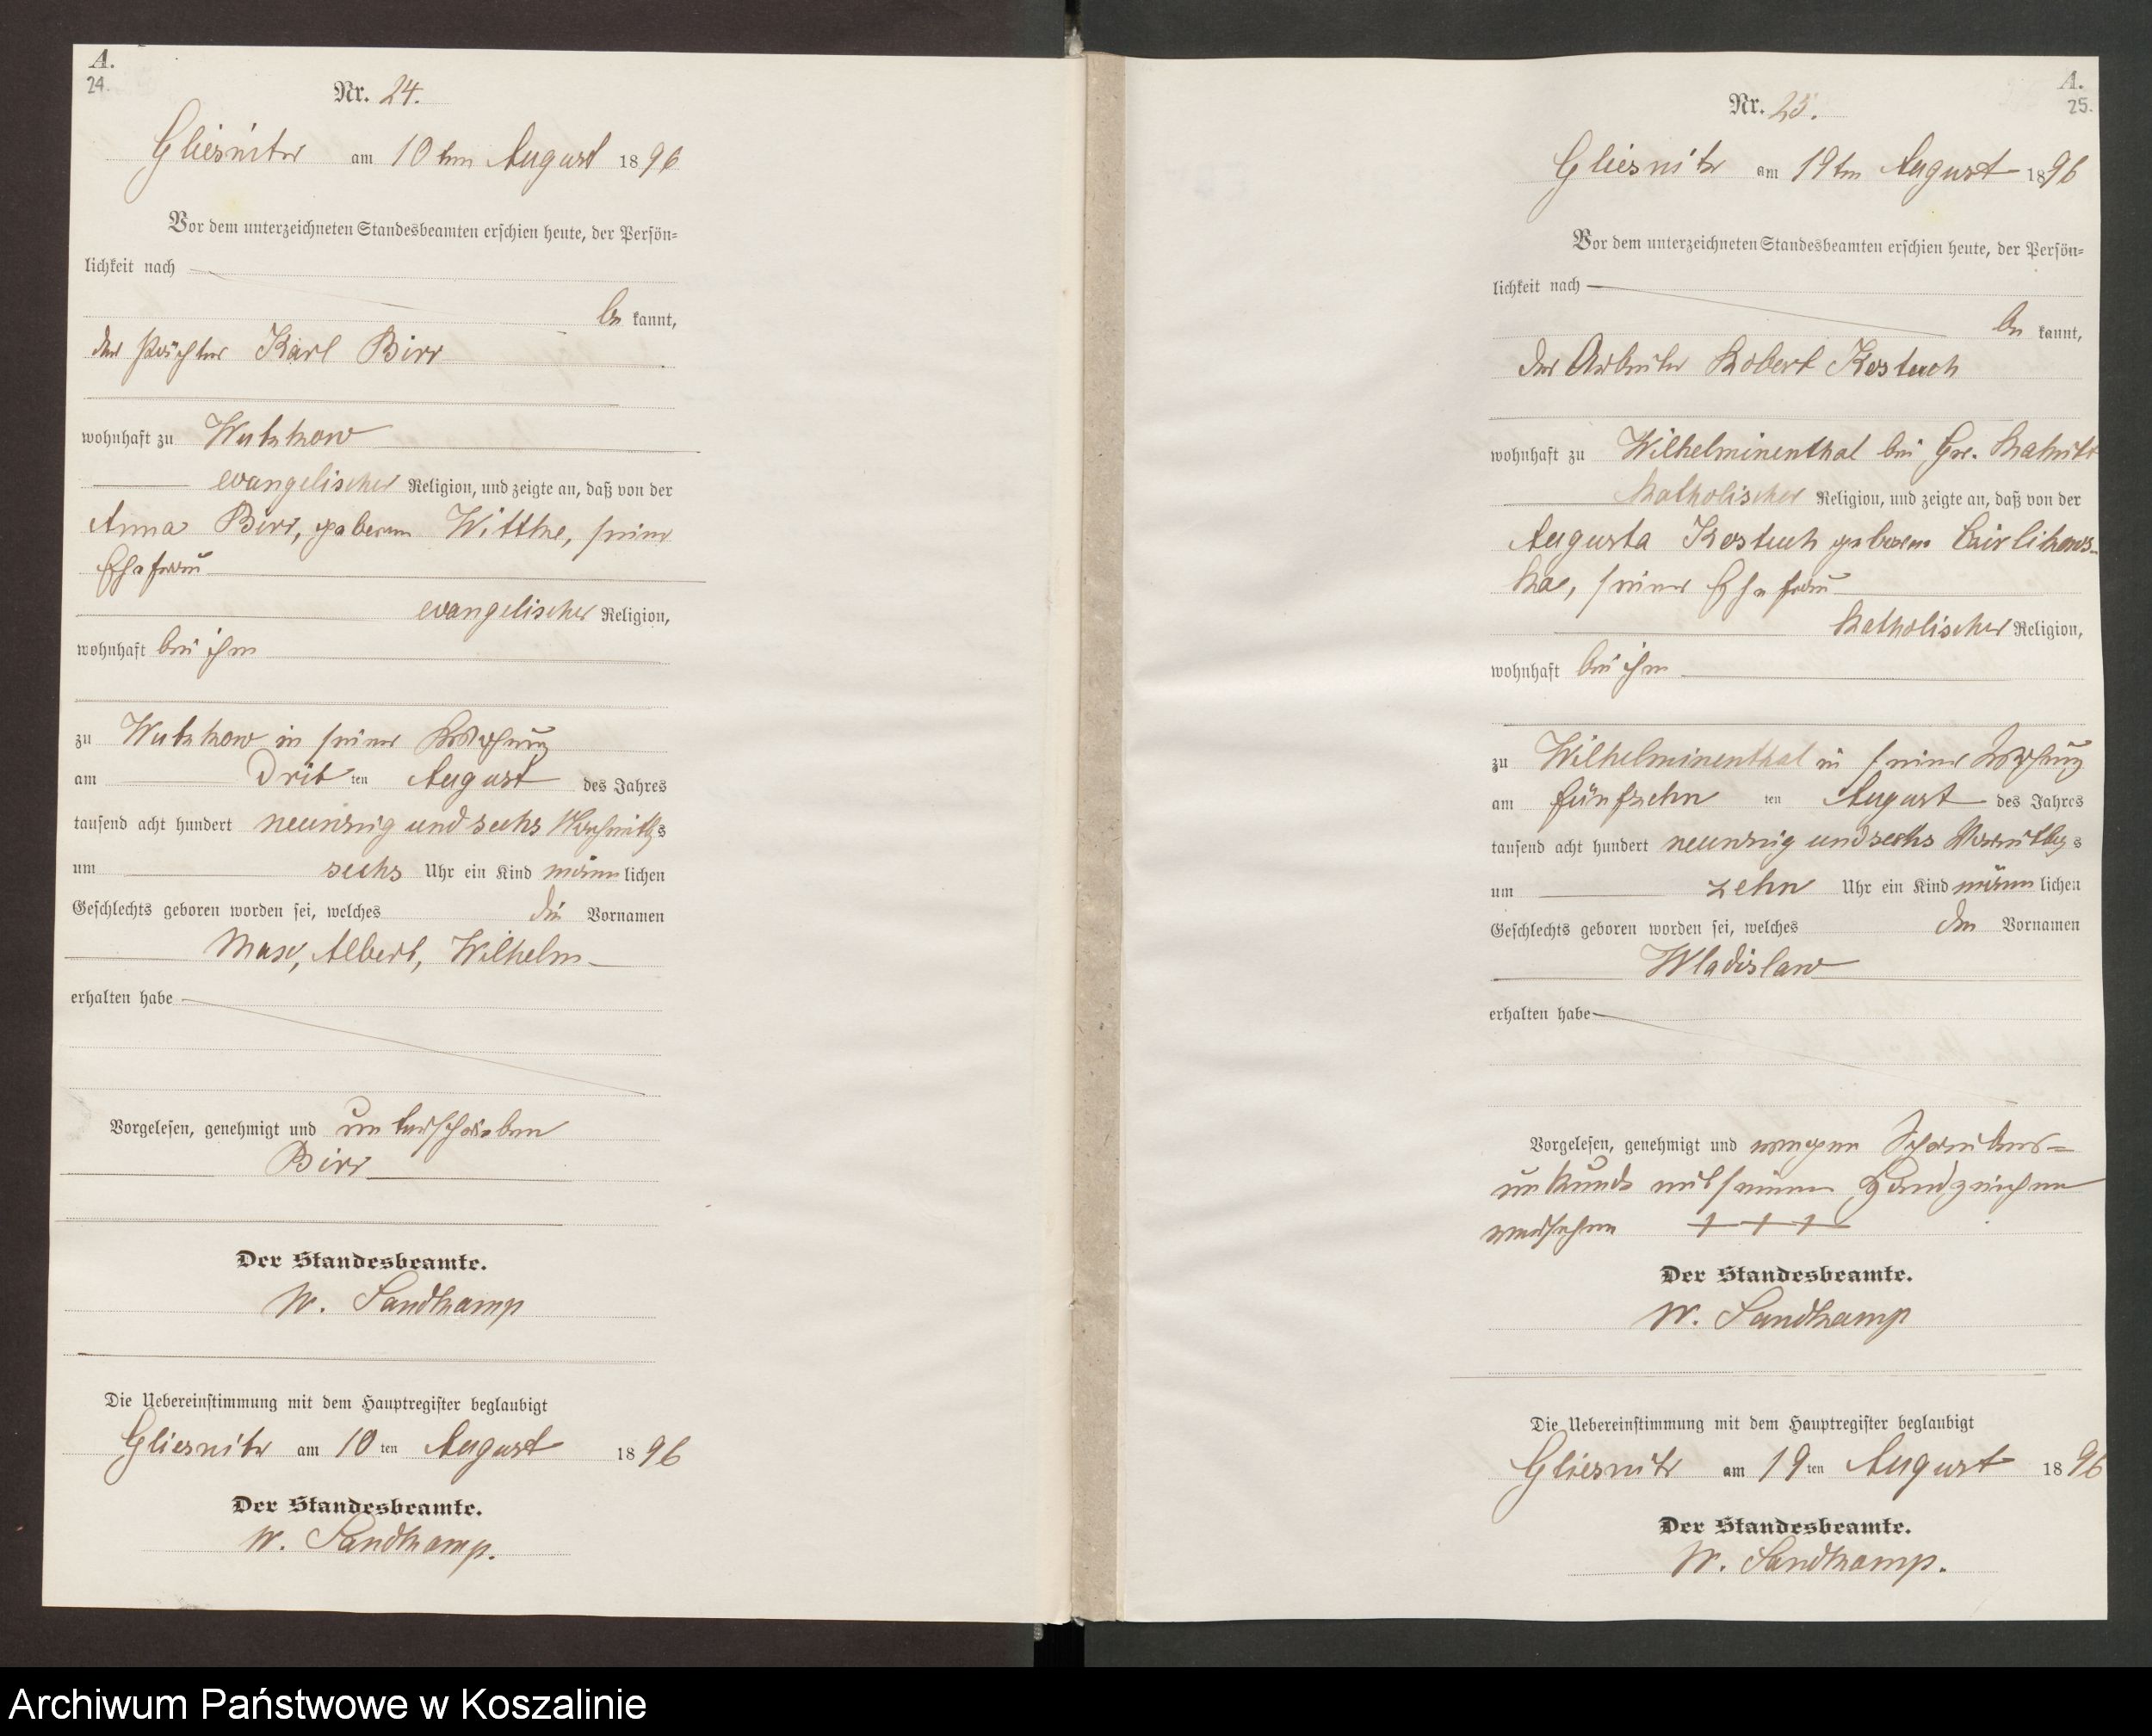 A.
24.
Nr. 24.
Gliesnitz am 10ten August 1896
Vor dem unterzeichneten Standesbeamten erschien heute, der Persön=
lichkeit nach
be kannt,
der Pächter Karl Birr
wohnhaft zu Wutzkow
evangelischer Religion, und zeigte an, daß von der
Anna Birr, geborenen Witthe, seiner
Ehefrau
evangelischer Religion,
wohnhaft bei ihm
zu Wutzkow in seiner Wohnung
am Drit ten August des Jahres
tausend acht hundert neunzig und sechs Nachmittags
um sechs Uhr ein Kind männlichen
Geschlechts geboren worden sei, welches die Vornamen
Max, Albert, Wilhelm
erhalten habe
Vorgelesen, genehmigt und unterschrieben
Birr
Der Standesbeamte.
W. Sandkamp
Die Uebereinstimmung mit dem Hauptregister beglaubigt
Gliesnitz am 10 ten August 1896
Der Standesbeamte.
W. Sandkamp.
A.
25.
Nr. 25.
Gliesnitz am 19ten August 1896
Vor dem unterzeichneten Standesbeamten erschien heute, der Persön=
lichkeit nach
be kannt,
der Arbeiter Robert Kostuch
wohnhaft zu Wilhelminenthal bei Gr.
katholischer Religion, und zeigte an, daß von der
Augusta Kostuch geborene
ka, seiner Ehefrau
katholischer Religion,
wohnhaft bei ihm
zu Wilhelminenthal in seiner Wohnung
am fünfzehn ten August des Jahres
tausend acht hundert neunzig und sechs Vormittags
um zehn Uhr ein Kind männlichen
Geschlechts geboren worden sei, welches den Vornamen
Wladislaw
erhalten habe
Vorgelesen, genehmigt und wegen Schreibens=
unkunde mit seinem Handzeichen
versehen + + +
Der Standesbeamte.
W. Sandkamp
Die Uebereinstimmung mit dem Hauptregister beglaubigt
Gliesnitz am 19 ten August 1896
Der Standesbeamte.
W. Sandkamp.
Archiwum Państwowe w Koszalinie